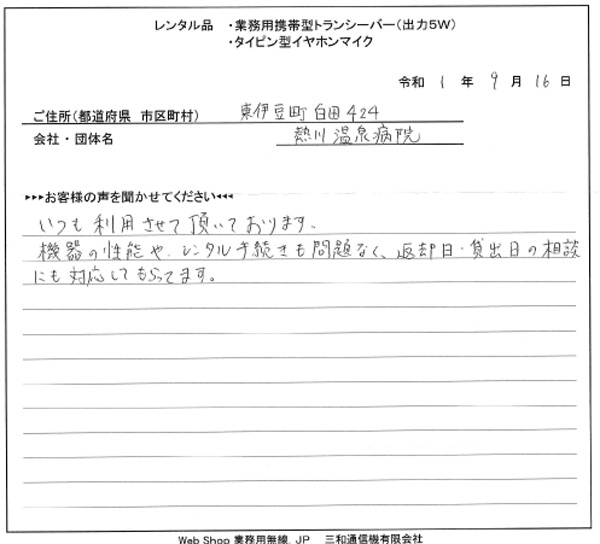 レンタル品 ・業務用携帯型トランシーバー(出力5W)
・タイピン型イヤホンマイク
令和 1 年 9 月 16 日
ご住所(都道府県 市区町村) 東伊豆町白田424
会社・団体名 熱川温泉病院
▸▸▸お客様の声を聞かせてください◂◂◂
いつも利用させて頂いております。
機器の性能や、レンタル手続きも問題なく、返却日・貸出日の相談
にも対応してもらってます。
Web Shop 業務用無線.JP 三和通信機有限会社